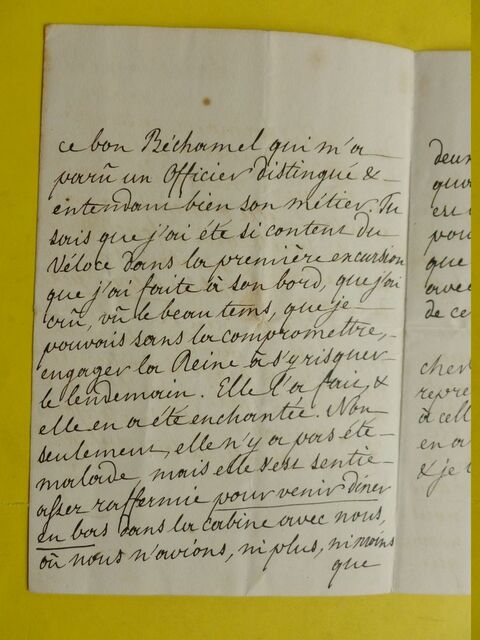 ce bon Béchamel qui m'a
parû un Officier distingué &
entendant bien son métier. Tu
sais que j'ai été si content du
Véloce dans la première excursion
que j'ai faite à son bord, que j'ai
crû, vû le beau tems, que je
pouvais sans la compromettre,
engager la Reine à s'y risquer
le lendemain. Elle l'a fait, &
elle en a été enchantée. Non
seulement, elle n'y a pas été
malade, mais elle s'est sentie
assez raffermie pour venir dîner
en bas dans la cabine avec nous,
où nous n'avions, ni plus, ni moins
que
deux
qua
est
pou
que
avec
de ce
cher
repre
à cell
en a
& je